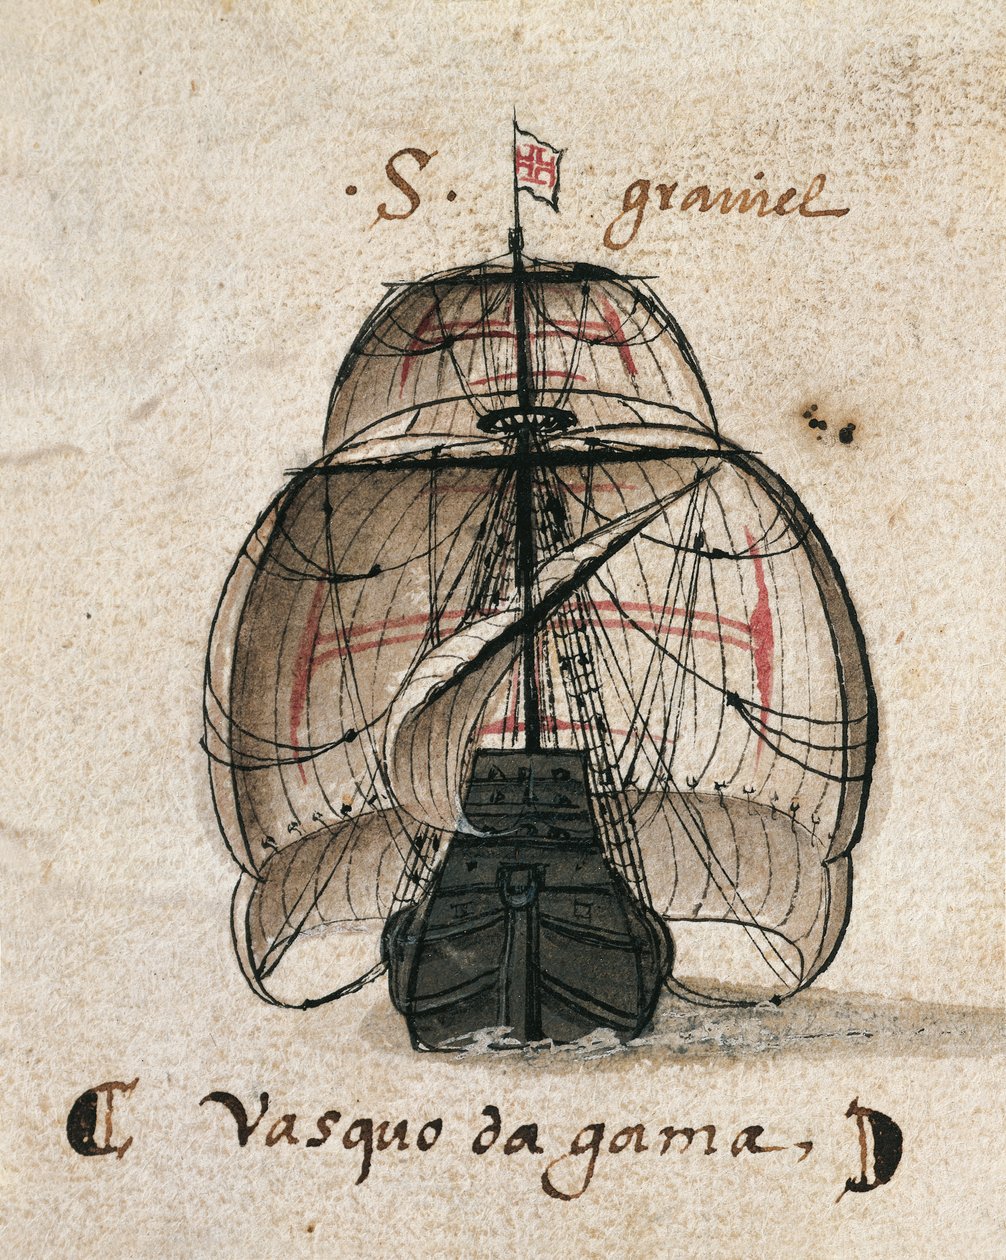 . S . graviel
Vasquo da gama,